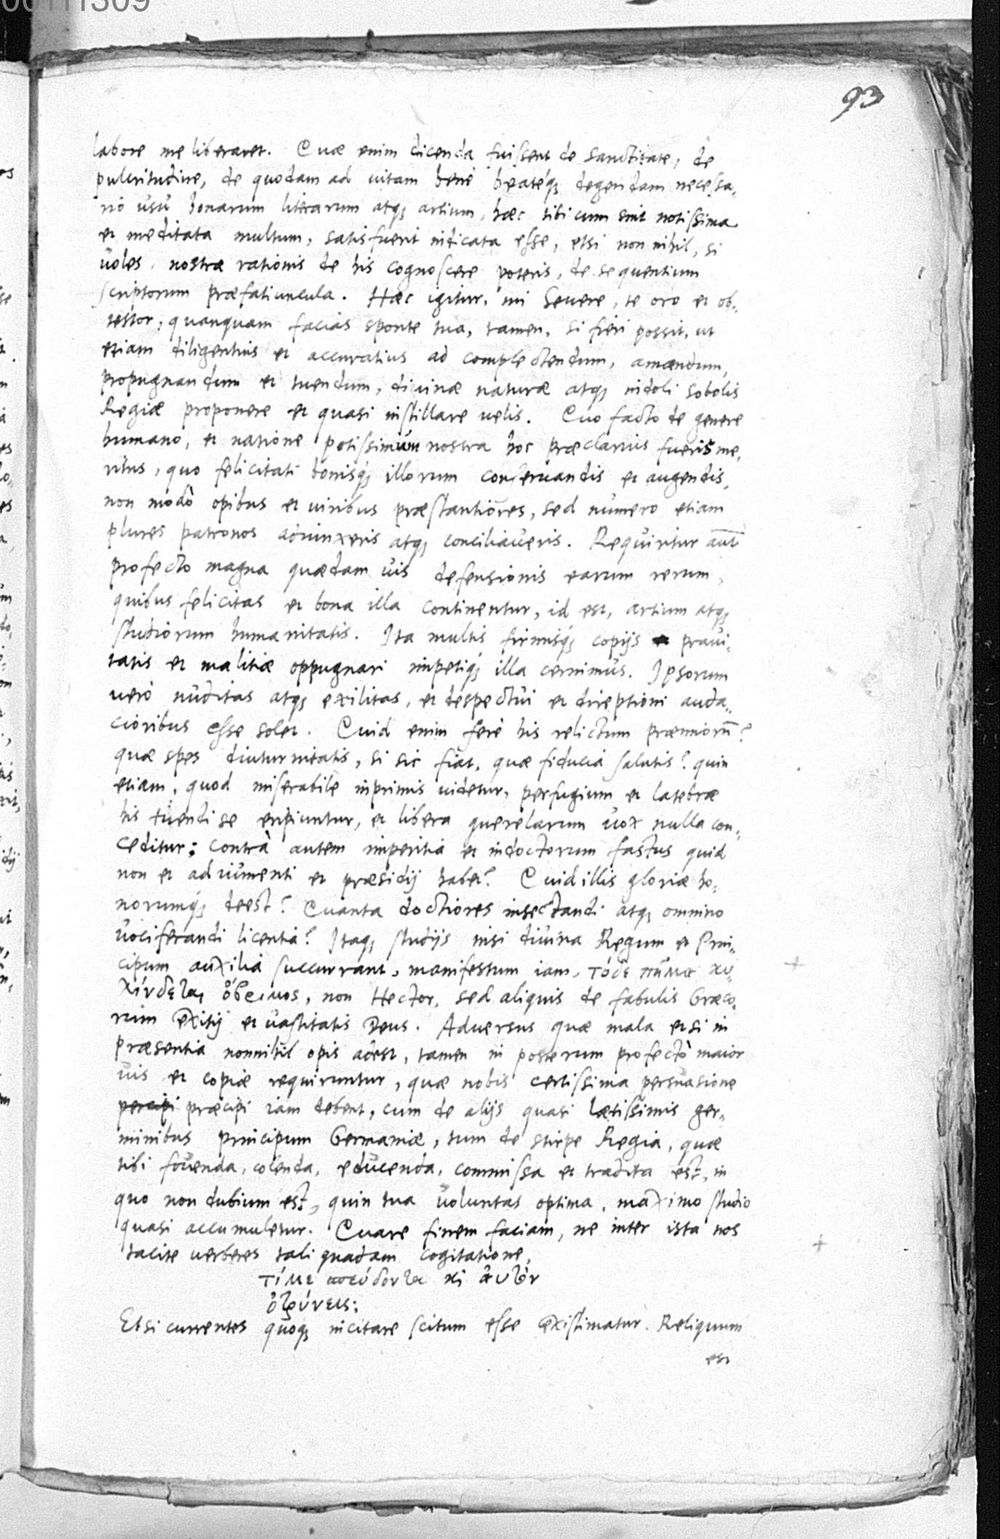 00111309
93
labore me liberaret. Quae enim dicenda fuissent de Sanctitate, de
pulcritudine, de quodam ad uitam bene beateq; degendam necessa,
rio usu bonarum literarum atq; artium, haec tibi cum sint notissima
et meditata multum, satis fuerit indicata esse, etsi non nihil, si
uoles, nostrae rationis de his cognoscere poteris, de sequentium
scriptorum praefatiuncula. Haec igitur, mi Seuere, te oro et ob,
testor, quanquam facias sponte tua, tamen, si fieri possit, ut
etiam diligentius et accuratius ad complectendum, amandum,
propugnandum et tuendum, diuinae naturae atq; indoli sobolis
Regiae proponere et quasi instillare uelis. Quo facto de genere
humano, et natione potissimum nostra hoc praeclarius fueris me,
ritus, quo felicitati bonisq; illorum conseruandis et augendis,
non modò opibus et uiribus praestantiores, sed numero etiam
plures patronos adiunxeris atq; conciliaueris. Requiritur aut
profecto magna quaedam uis defensionis earum rerum,
quibus felicitas et bona illa continentur, id est, artium atq;
studiorum humanitatis. Ita multis firmisq; copijs praui,
tatis et malitiae oppugnari impetiq; illa cernimus. Ipsorum
uerò nuditas atq; exilitas, et despectui et direptioni auda,
cioribus esse solet. Quid enim ferè his relictum praemiorū?
quae spes diuturnitatis, si sic fiat, quae fiducia salutis? quin
etiam, quod miserabile inprimis uidetur, perfugium et latebrae
his tuendi se eripiuntur, et libera querelarum uox nulla con,
ceditur: contrà autem imperitia et indoctorum fastus quid
non et adiumenti et praesidij habet? Quid illis gloriae ho,
norumq; deest? Quanta doctiores insectandi atq; omnino
uociferandi licentia? Itaq; studijs nisi diuina Regum et Prin,
cipum auxilia succurrant, manifestum iam, τόδε πῆμα κυ,
λίνδεται ὄβριμος, non Hector, sed aliquis de fabulis Graeco,
rum exitij et uastitatis Deus. Aduersus quae mala etsi in
praesentia nonnihil opis adest, tamen in posterum profectò maior
uis et copiae requiruntur, quae nobis certissima persuasione
percipi praecipi iam debent, cum de alijs quasi laetissimis ger,
minibus principum Germaniae, tum de stirpe Regia, quae
tibi fouenda, colenda, educenda, commissa et tradita est, in
quo non dubium est, quin tua uoluntas optima, maximo studio
quasi accumuletur. Quare finem faciam, ne inter ista nos
tacite uerberes tali quadam cogitatione,
τί με σπεύδοντα κὶ αὐτὸν
ὀτρύνεις;
Etsi currentes quoq; incitare scitum esse existimatur. Reliquum
est